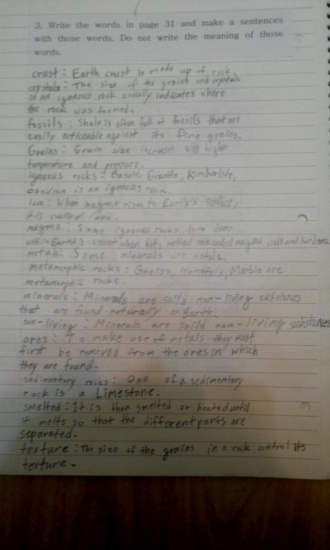 3. Write the words in page 31 and make a sentences
with those words. Do not write the meaning of those
words.
crust: Earth crust is made up of rock.
crystals: The size of the grains and crystals
in an igneous rock usually indicates where
the rock was formed.
fossils: Shale is often full of fossils that are
easily noticeable against its fine grains.
Grains: Grain size increases with higher
temperature and pressure.
igneous rocks: Basalt, Granite, Kimberlite,
obsidian is an igneous rock.
lava: When magma rises to Earth's surface,
it is called lava.
magma: Some igneous rocks form deep
within Earth's crust when hot, melted rock called magma cools and hardens.
metals: Some minerals are metals.
metamorphic rocks: Gneiss, Hornfels, Marble are
metamorphic rocks.
minerals: Minerals are solid, non-living substances
that are found naturally on Earth.
non-living: Minerals are solid non-living substances
ores: To make use of metals they must
first be removed from the ores in which
they are found.
sedimentary rocks: One of a sedimentary
rock is a Limestone.
smelted: It is then smelted or heated until
it melts so that the different parts are
separated.
texture: The size of the grains in a rock control its
texture.